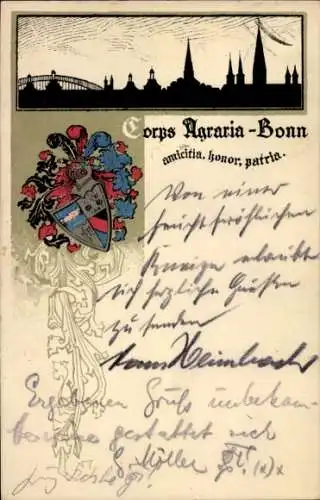 Corps Agraria-Bonn
amicitia, honor, patria.
Von einer
feuchtfröhlichen
Kneipe erlaubt
sich herzliche Grüßen
zu senden
Hans Heimbach
Ergebenen Gruß unbekan-
terweise gestattet sich
G. Möller